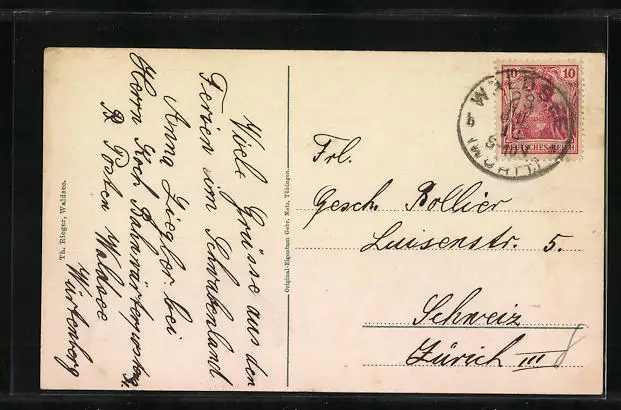 Viele Grüsse aus den
Ferien im Schwabenland
Anna Ziegler bei
Herrn Koch
Posten Waldsee
Würtenberg
Th. Rieger, Waldsee.
Original-Eigentum Gebr. Metz, Tübingen.
10 10
DEUTSCHES REICH
WALDS
Frl.
Gesch. Bollier
Luisenstr. 5.
Schweiz
Zürich III